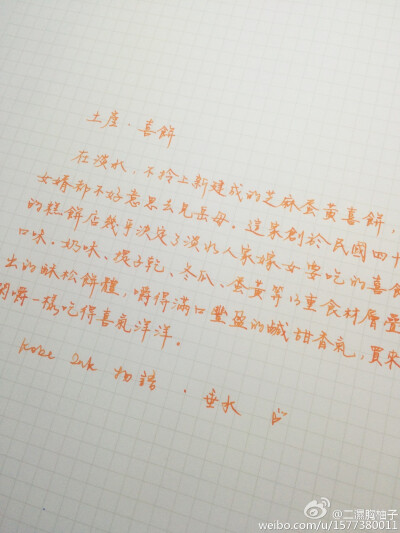 土產·喜餅
在淡水,不拎上新建成的芝麻蛋黃喜餅,
女婿都不好意思去見岳母。這家創於民國四十
的糕餅店幾乎決定了淡水人家嫁女要吃的喜餅
口味。奶味、提子乾、冬瓜、蛋黃等13重食材層疊
出的酥松餅體,嚼得滿口豐盈的鹹甜香氣,買來
嚼一樣吃得喜氣洋洋。
Kobe Ink 物語·垂水
@二濕胸柚子
weibo.com/u/1577380011